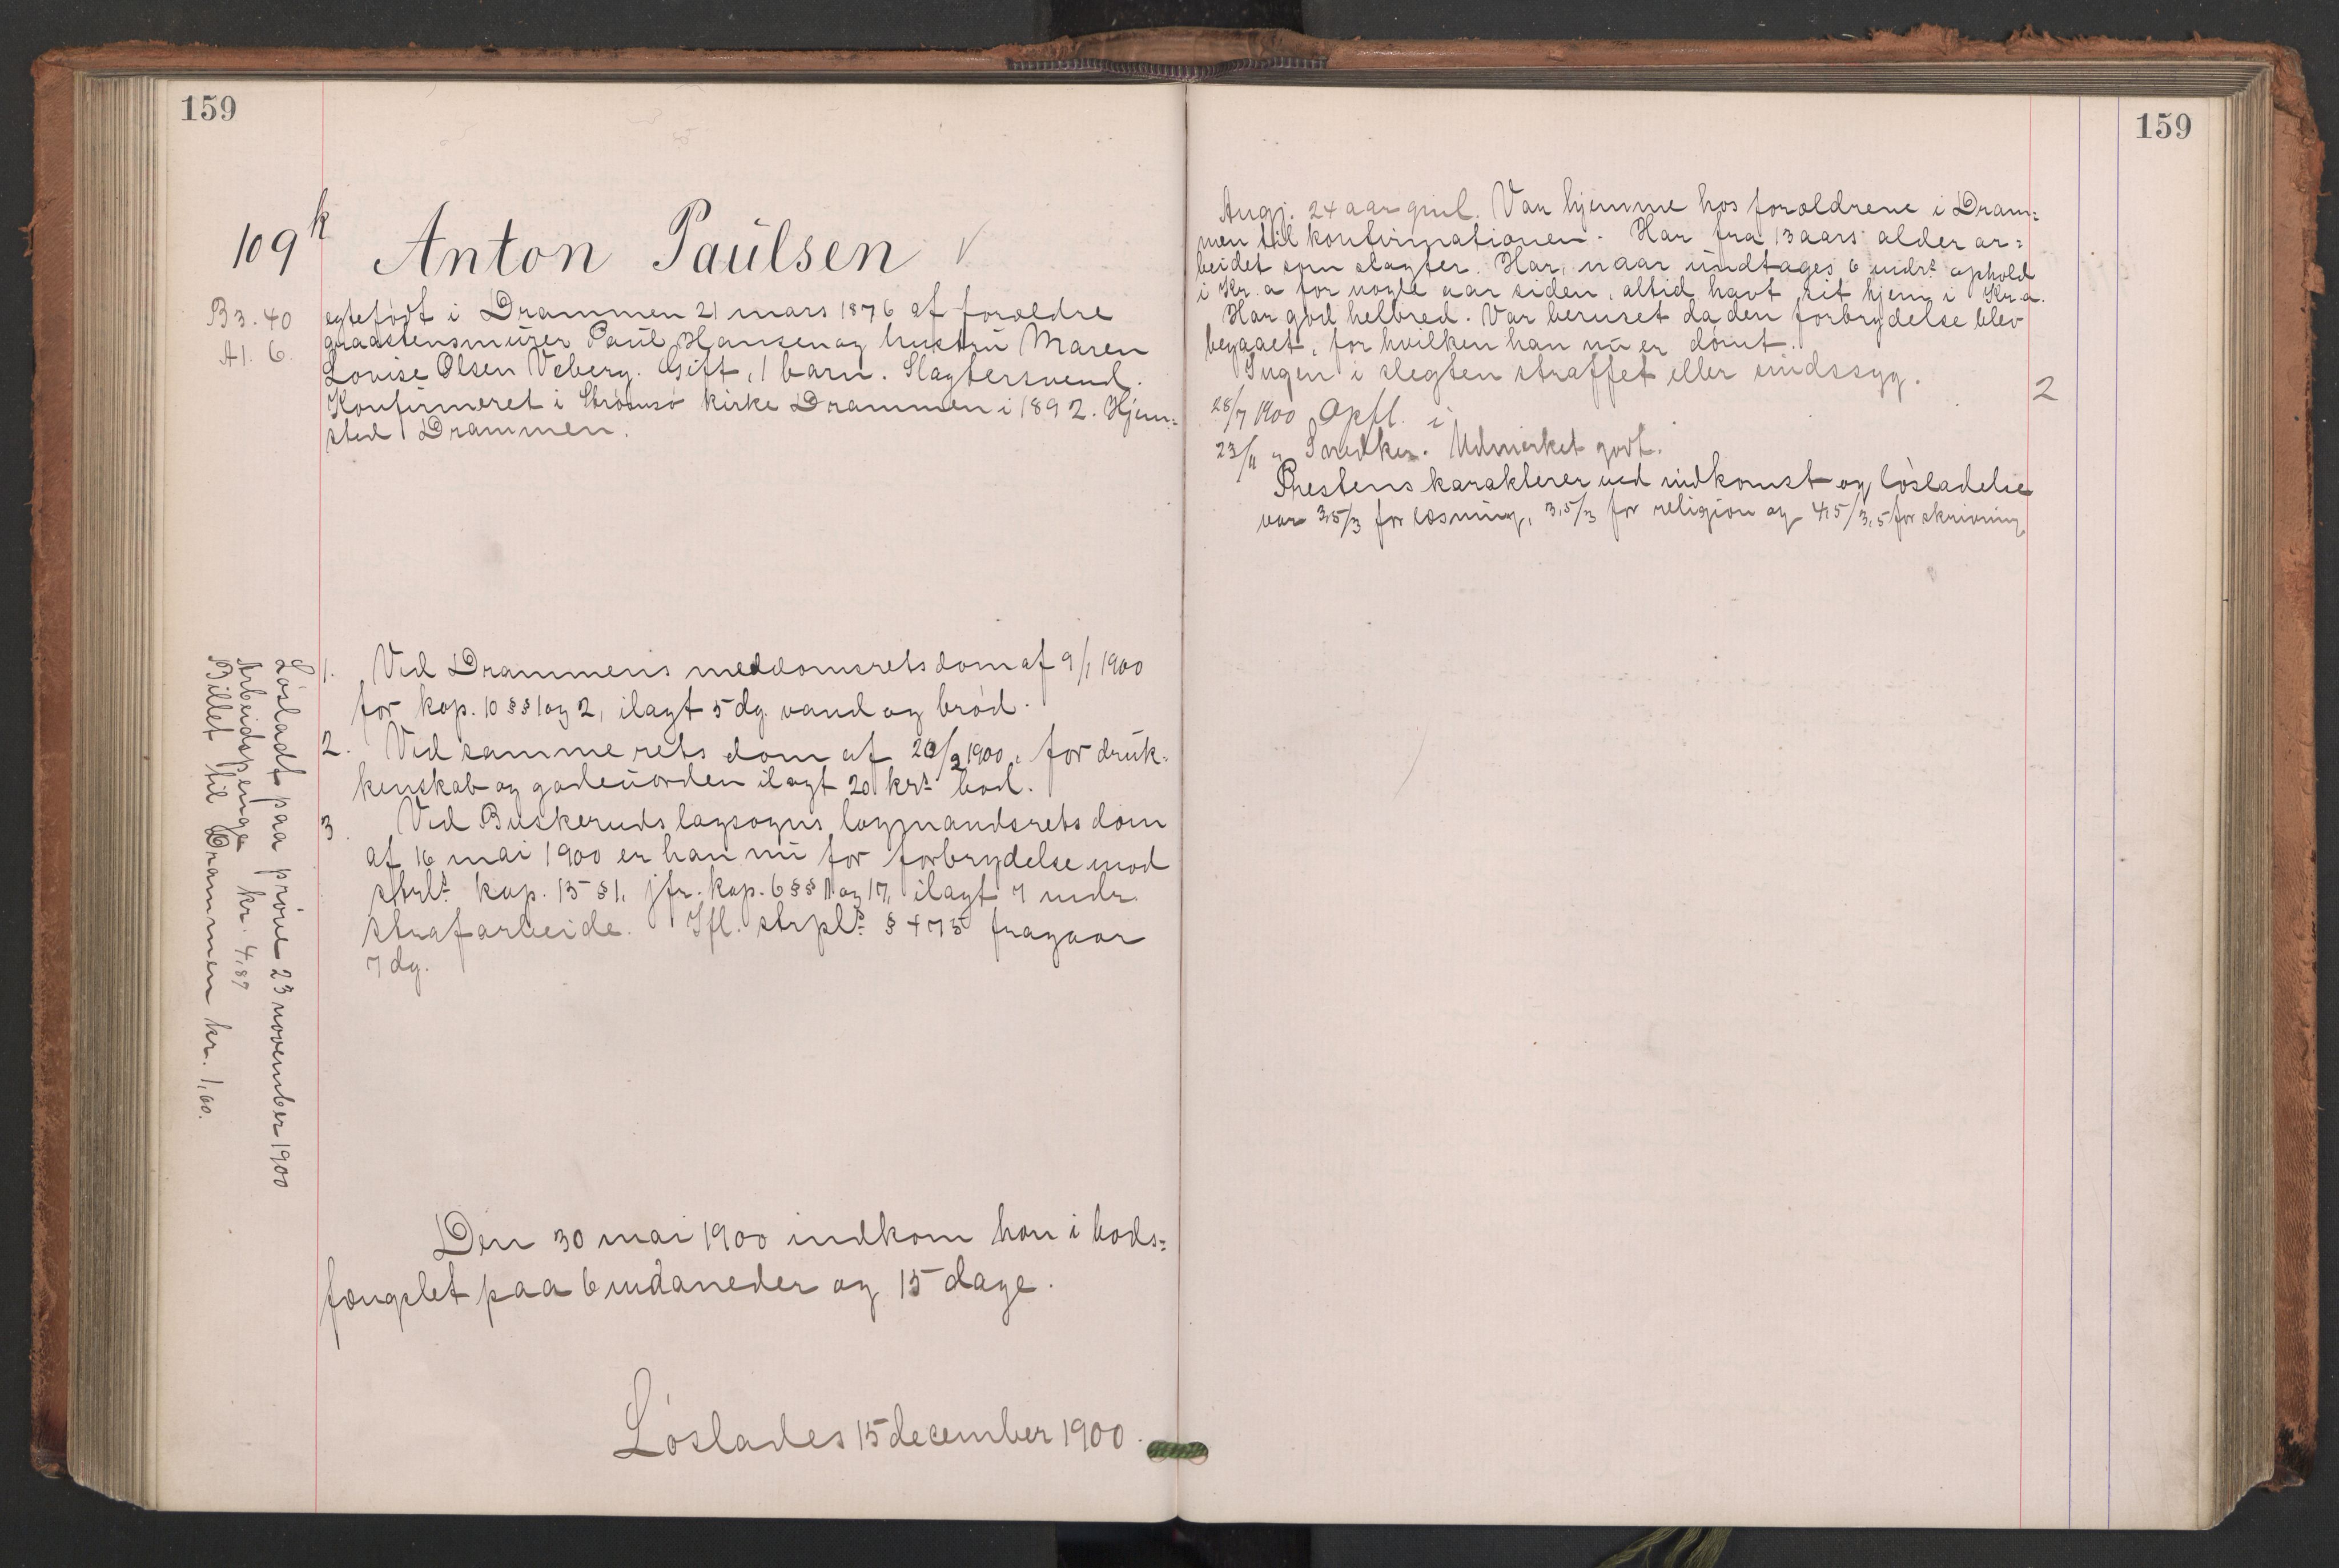 159
109 k Anton Paulsen
B3.40
A1.6.
egtefødt i Drammen 21 mars 1876 af forældre
graastensmurer Paul Hansen og hustru Maren
Lovise Olsen Veberg. Gift, 1 barn. Slagtersvend.
Konfirmeret i Strømsø kirke Drammen i 1892. Hjem=
sted Drammen.
1. Ved Drammens meddomsrets dom af 9/1 1900
for kap. 10 §§ 1 og 2, ilagt 5 dg. vand og brød.
2. Ved samme rets dom af 20/2 1900, for druk-
kenskab og gadeuorden ilagt 20 krs bod.
3. Ved Buskeruds lagsogns lagmandsrets dom
af 16 mai 1900 er han nu for forbrydelse mod
strls kap. 15 § 1, jfr. kap. 6 §§ 11 og 17, ilagt 7 mdr
strafarbeide. Ifl. strpls § 475 fragaar
7 dg.
Løsladt paa prøve 23 november 1900
Arbeidspenge kr. 4,87
Billet til Drammen kr. 1,60.
Den 30 mai 1900 indkom han i bods=
fængslet paa 6 maaneder og 15 dage.
Løslades 15 december 1900.
159
Angj. 24 aar gml. Var hjemme hos forældrene i Dram=
men til konfirmationen. Har fra 13 aars alder ar=
beidet som slagter. Har, naar undtages 6 mdrs ophold
i Kr.a for nogle aar siden, altid havt sit hjem i Kr.a.
Har god helbred. Var beruset da den forbrydelse blev
begaaet, for hvilken han nu er dømt.
Ingen i slegten straffet eller sindssyg.
2
28/7 1900 Opfl. i
23/11 " Snedker. Udmerket godt.
Prestens karakterer ved indkomst og løsladelse
var 3,5/3 for læsning, 3,5/3 for religion og 4,5/3,5 for skrivning